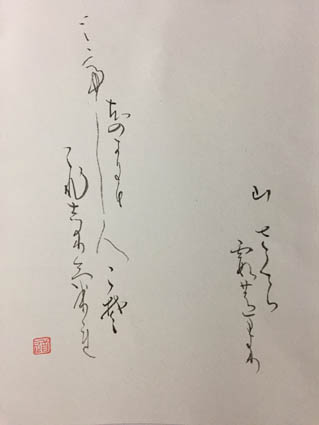 山さくら
霞のまより
ほのかにも
みてし人こそ
こひしかりけれ